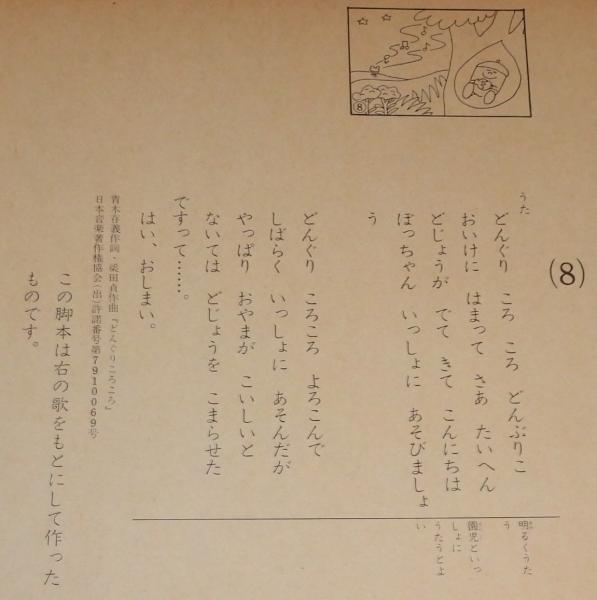 (8)
うた
どんぐり ころ ころ どんぶりこ
おいけに はまって さあ たいへん
どじょうが でて きて こんにちは
ぼっちゃん いっしょに あそびましょ
う
どんぐり ころころ よろこんで
しばらく いっしょに あそんだが
やっぱり おやまが こいしいと
ないては どじょうを こまらせた
ですって……。
はい、おしまい。
明るくうた
う
園児といっ
しょに
うたうとよ
い
青木存義作詞・梁田貞作曲『どんぐりころころ』
日本音楽著作権協会（出）許諾番号第7910069号
この脚本は右の歌をもとにして作った
ものです。
8